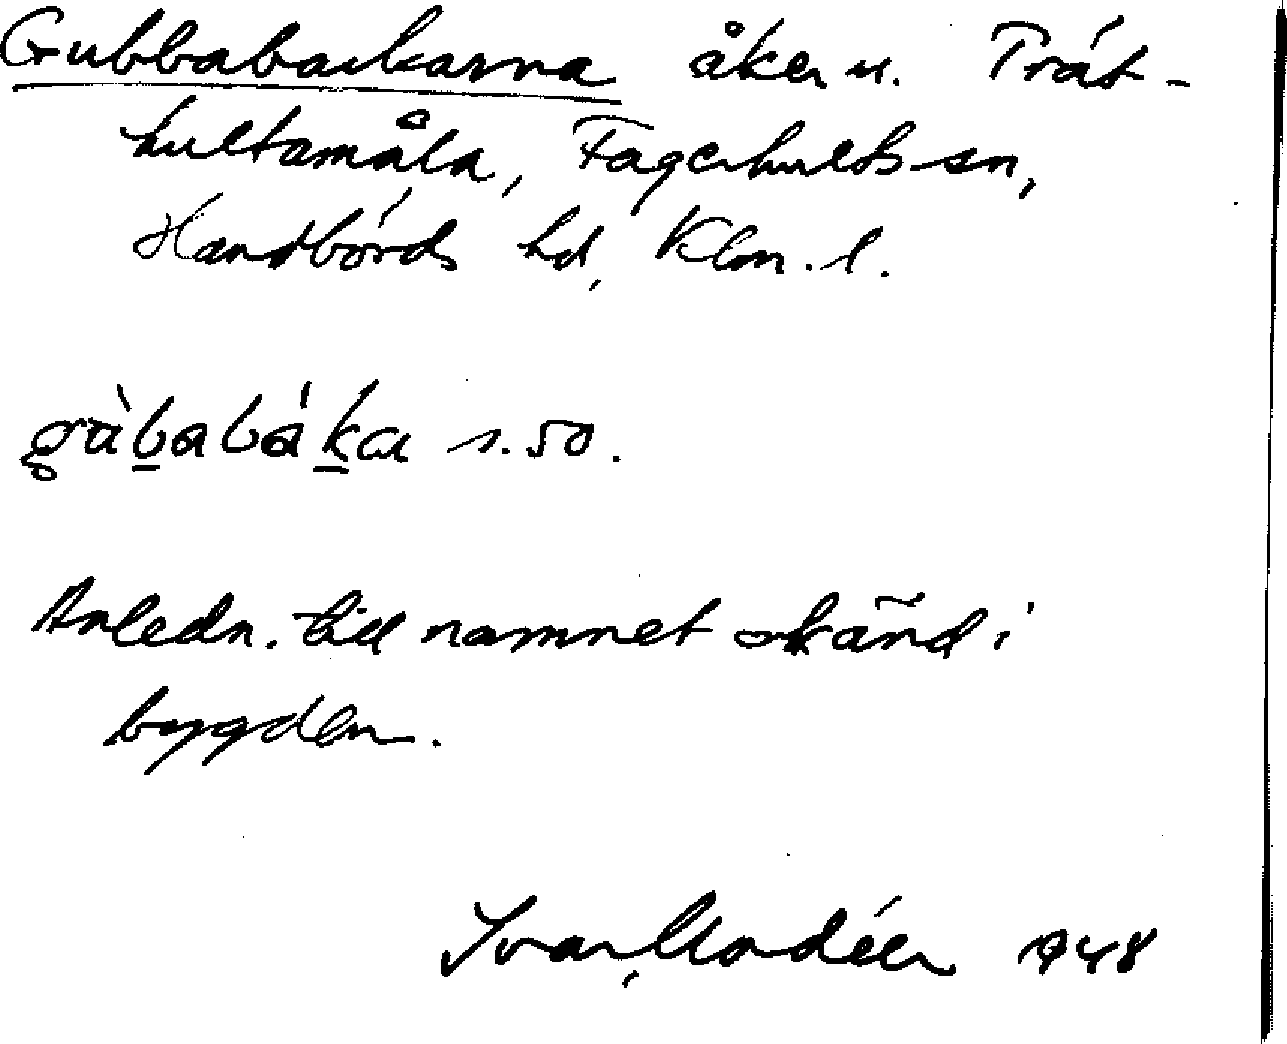 Gubbabackarna åker u. Trät-
hultamåla, Fagerhults sn,
Handbörds hd, Klm. l.
gùbabáka s. 50.
Anledn. till namnet okänd i
bygden.
Ivar Modéer 1948